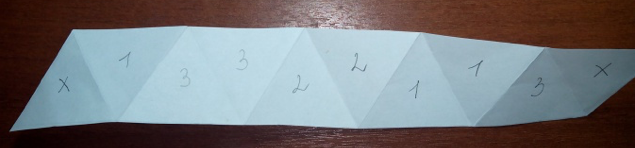 x 1 3 3 2 2 1 1 3 x